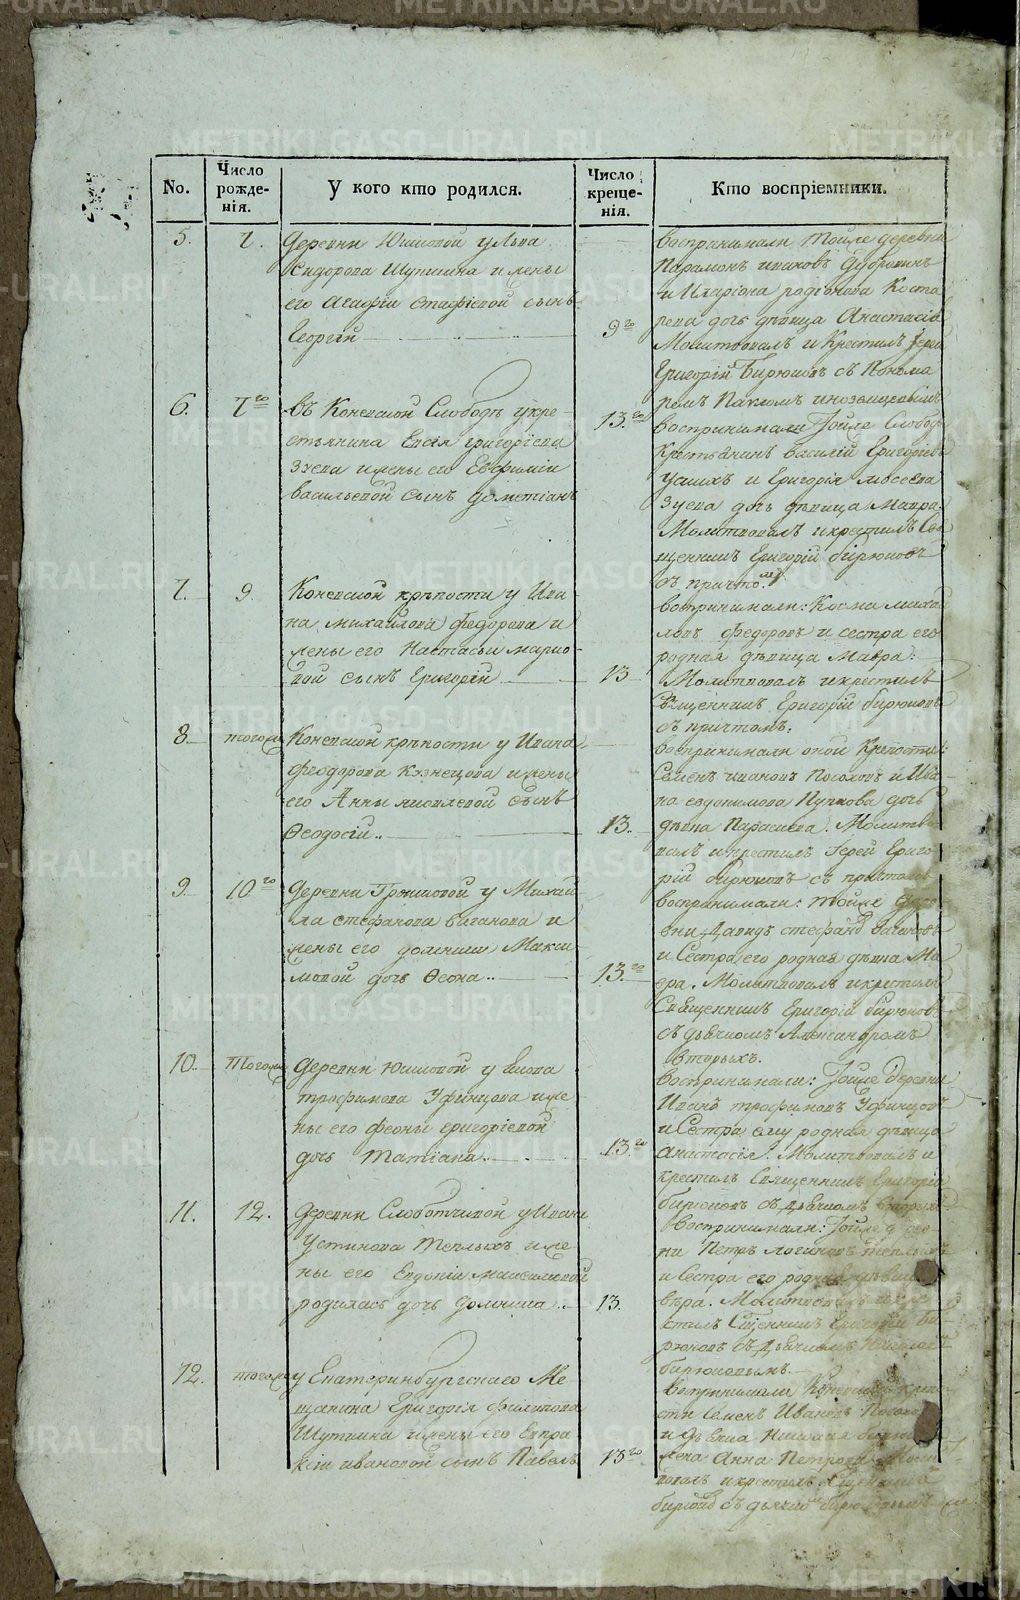 METRIKI.GASO-URAL.RU
No.
Число рожде-нія.
У кого кто родился.
Число креще-нія.
Кто воспріемники.
5.
7.
Деревни Юшковой у Льва
Сидорова Шуткина и жены
его Агафіи Стафіевой сынъ
Георгій
9го
воспринимали Тойже деревни
Парамонъ Ивановъ Дубровинъ
и Иларіона родіонова Коста
рева дочь дѣвица Анастасія
Молитвовалъ и Крестилъ Іерей
Григорій Бирюковъ съ Понома
ремъ Павломъ
6.
7го
въ Коневской Слободѣ у кре-
стьянина Григоріева
Зуева и жены его Евфиміи
васильевой сынъ Дометіанъ
13.го
воспринимали Тойже Слободы
Крестьянинъ василій Григорьевъ
и Григорія Моссеева
Зуева дочь дѣвица Мавра.
Молитвовалъ и крестилъ Свя
щенникъ Григорій бирюковъ
съ причто.мъ
7.
9.
Коневской крѣпости у Ива
на михайлова федорова и
жены его Настасьи марко
вой сынъ Григорій
13
воспринимали: Косма михай
ловъ федоровъ и сестра его
родная дѣвица Мавра.
Молитвовалъ и крестилъ
Священникъ Григорій бирюковъ
съ причтомъ.
8.
тогожъ
Коневской крѣпости у Ивана
Феодорова Кузнецова и жены
его Анны яковлевой сынъ
Ѳеодосій..
13.
воспринимали оной Крѣпости:
Семенъ ивановъ и Ива
на евдокимова Пупкова дочь
дѣвка Парасковья. Молитво
валъ и крестилъ Іерей Григо
рій бирюковъ съ причтомъ
9.
10го
Деревни у Михай
ла стефанова ваганова и
жены его домники Макси
мовой дочь Ѳеона..
13.го
воспринимали: тойже Дере
вни Давидъ стефановъ вагановъ
и Сестра его родная дѣвка Ма
вра. Молитвовалъ и крестилъ
Священникъ Григорій бирюковъ
съ дьячкомъ Александромъ
вторыхъ.
10.
Тогожъ
Деревни Юшковой у
трофимова Уфинцова и же
ны его феоны григорьевой
дочь Татіана.
13.го
воспринимали: Тойже деревни
Иванъ трофимовъ Уфинцовъ
и Сестра ему родная дѣвица
анастасія. Молитвовалъ и
крестилъ Священникъ Григорій
бирюковъ съ дьячкомъ вторыхъ
11.
12.
Деревни Слоботчиковой у Ивана
Устинова Теплыхъ и же
ны его Евдокіи максимовой
родилась дочь домника..
13.
воспринимали: Тойже дере
вни Петръ логиновъ теплыхъ
и Сестра его родная дѣвица
вѣра. Молитвовалъ и кре
стилъ Священникъ Григорій би
рюковъ съ дьячкомъ
бирюковымъ.
12.
тогожъ
у Екатеринбургскаго Ме
щанина Григорія филипова
Шуткина и жены его Евпра
ксіи ивановой сынъ Павелъ
13го
воспринимали Коневской крѣпо
сти Семенъ Ивановъ
и дьячка Николая бирюкова
жена Анна Петрова Моли
твовалъ и крестилъ
бирюковъ съ дьячкомъ бирюковымъ